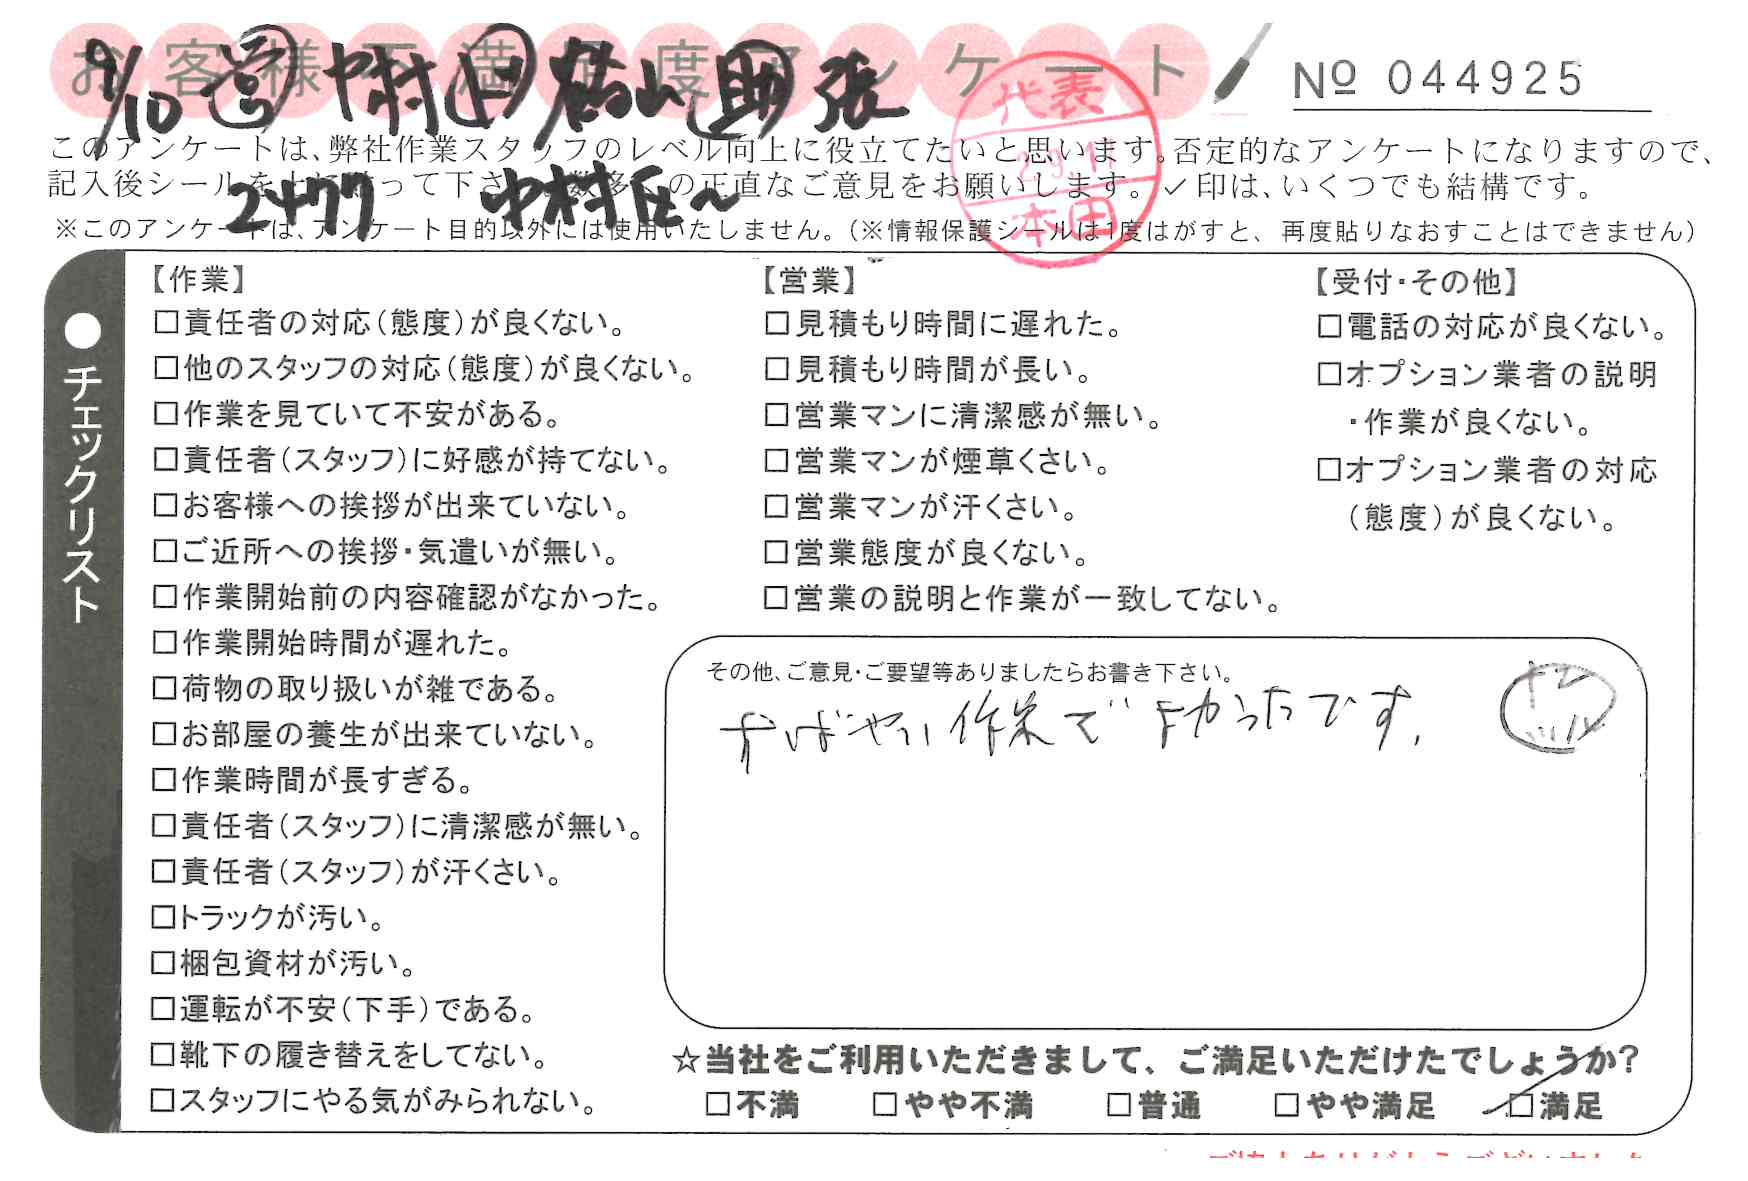 お客様不満足度アンケート
№ 044925
9/10 営 中村 日 横山 助 張
2477 中村
代表
29.11
本田
このアンケートは、弊社作業スタッフのレベル向上に役立てたいと思います。否定的なアンケートになりますので、
記入後シールを上に貼って下さい。数多くの正直なご意見をお願いします。✓印は、いくつでも結構です。
※このアンケートは、アンケート目的以外には使用いたしません。(※情報保護シールは1度はがすと、再度貼りなおすことはできません)
●チェックリスト
【作業】
□責任者の対応(態度)が良くない。
□他のスタッフの対応(態度)が良くない。
□作業を見ていて不安がある。
□責任者(スタッフ)に好感が持てない。
□お客様への挨拶が出来ていない。
□ご近所への挨拶・気遣いが無い。
□作業開始前の内容確認がなかった。
□作業開始時間が遅れた。
□荷物の取り扱いが雑である。
□お部屋の養生が出来ていない。
□作業時間が長すぎる。
□責任者(スタッフ)に清潔感が無い。
□責任者(スタッフ)が汗くさい。
□トラックが汚い。
□梱包資材が汚い。
□運転が不安(下手)である。
□靴下の履き替えをしてない。
□スタッフにやる気がみられない。
【営業】
□見積もり時間に遅れた。
□見積もり時間が長い。
□営業マンに清潔感が無い。
□営業マンが煙草くさい。
□営業マンが汗くさい。
□営業態度が良くない。
□営業の説明と作業が一致してない。
【受付・その他】
□電話の対応が良くない。
□オプション業者の説明
・作業が良くない。
□オプション業者の対応
(態度)が良くない。
その他、ご意見・ご要望等ありましたらお書き下さい。
すばやい作業でよかったです。
☆当社をご利用いただきまして、ご満足いただけたでしょうか?
□不満 □やや不満 □普通 □やや満足 ☑満足